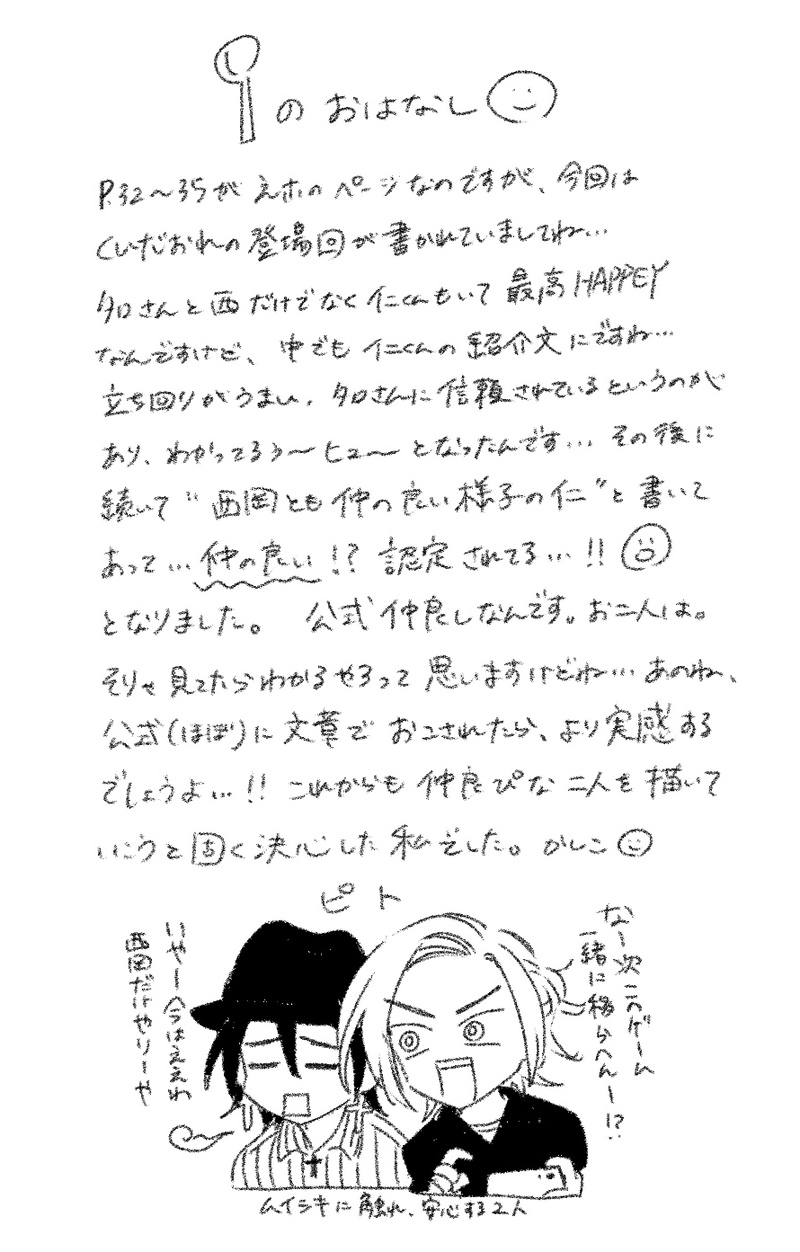 のおはなし
P.32〜35がえホのページなのですが、今回は
くいだおれの登場回が書かれていましてね…
タロさんと西だけでなく仁くんもいて最高HAPPEY
なんですけど、中でも仁くんの紹介文にですね…
立ち回りがうまい、タロさんに信頼されているというのが
あり、わかってるぅ〜ヒュ〜となったんです…その後に
続いて"西岡とも仲の良い様子の仁"と書いて
あって…仲の良い!?認定されてる…!!
となりました。公式仲良しなんです。お二人は。
そりゃ見てたらわかるやろって思いますけどね…あのね、
公式(ほぼ)に文章でおこされたら、より実感する
でしょうよ…!!これからも仲良ぴな二人を描いて
いこうと固く決心した私でした。かしこ
ピト
なー次このゲーム
一緒に
いやー今はええわ
西岡だけやりーや
ムイシキに触れ、安心する2人